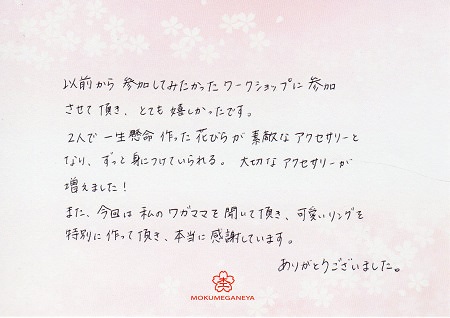 以前から 参加してみたかった ワークショップに 参加
させて 頂き、とても 嬉しかったです。
2人で 一生懸命 作った 花びらが 素敵な アクセサリーと
なり、ずっと 身につけていられる。 大切な アクセサリーが
増えました!
また、今回は 私の ワガママを 聞いて 頂き、可愛いリングを
特別に 作って 頂き、本当に 感謝しています。
ありがとうございました。
MOKUMEGANEYA